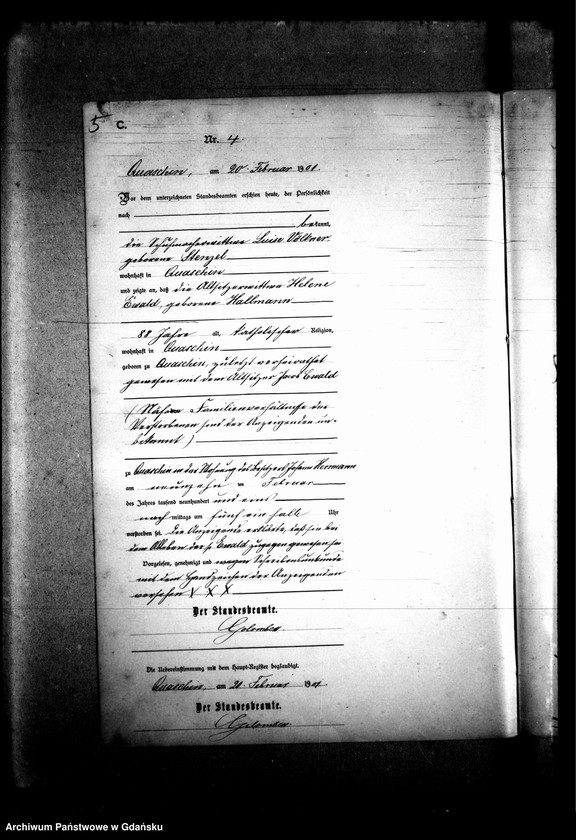 5
C.
Nr. 4.
Quaschin, am 20 Februar 1901.
Vor dem unterzeichneten Standesbeamten erschien heute, der Persönlichkeit
nach
bekannt,
die Schuhmacherwittwe Luise Völkner
geborene Stenzel
wohnhaft in Quaschin
und zeigte an, daß die Altsitzerwittwe Helene
Ewald, geborene Hallmann
88 Jahre alt, katholischer Religion,
wohnhaft in Quaschin
geboren zu Quaschin, zuletzt verheirathet
gewesen mit dem Altsitzer Ewald
(Nähere Familienverhältnisse der
Verstorbenen sind der Anzeigenden un-
bekannt)
zu Quaschin in der Wohnung des Besitzers Johann Herrmann
am neunzehn ten Februar
des Jahres tausend neunhundert und eins
nach mittags um fünf ein halb Uhr
verstorben sei. Die Anzeigende erklärte, daß sie bei
dem Ableben der p. Ewald zugegen gewesen sei
Vorgelesen, genehmigt und wegen Schreibensunkunde
mit dem Handzeichen der Anzeigenden
versehen X X X
Der Standesbeamte.
Die Uebereinstimmung mit dem Haupt-Register beglaubigt.
Quaschin, am 20. Februar 1901.
Der Standesbeamte.
Archiwum Państwowe w Gdańsku